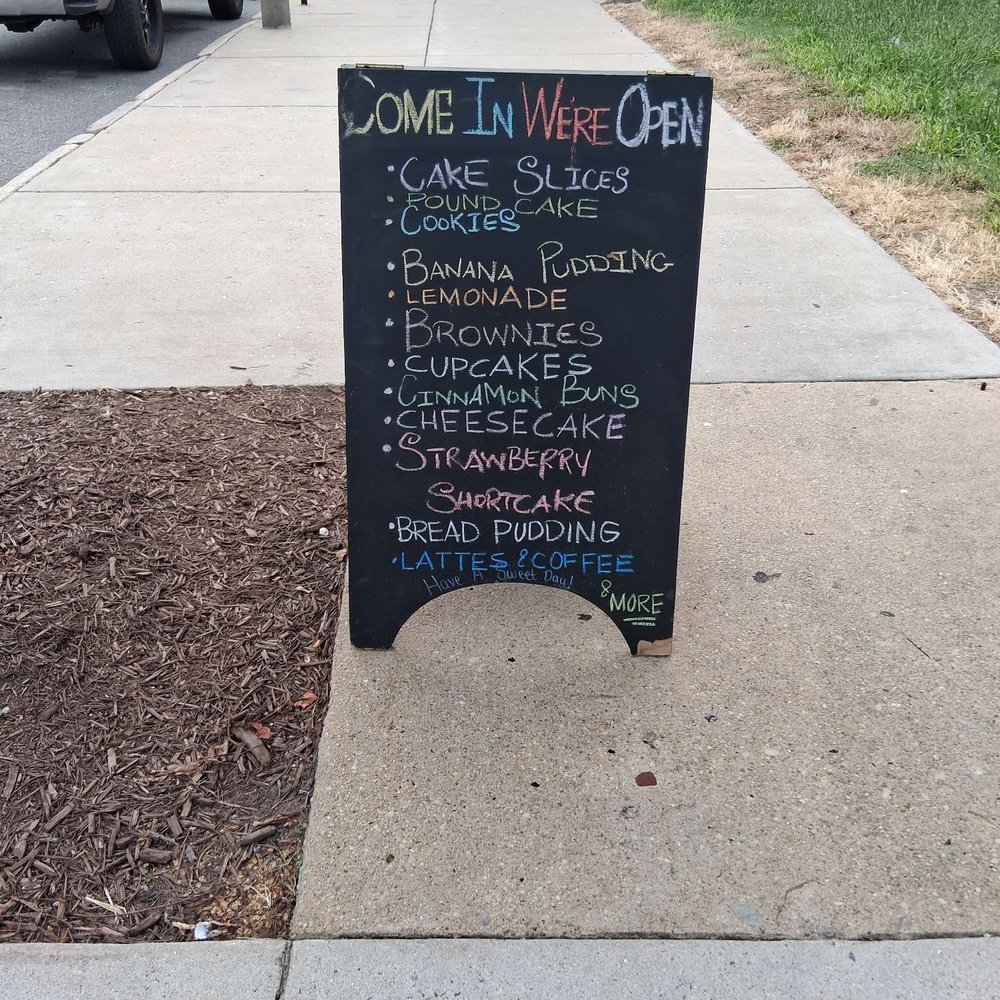 COME IN WE'RE OPEN
• CAKE SLICES
• POUND CAKE
• COOKIES
• BANANA PUDDING
• LEMONADE
• BROWNIES
• CUPCAKES
• CINNAMON BUNS
• CHEESECAKE
• STRAWBERRY
SHORTCAKE
• BREAD PUDDING
• LATTES & COFFEE
Have A Sweet Day!
& MORE